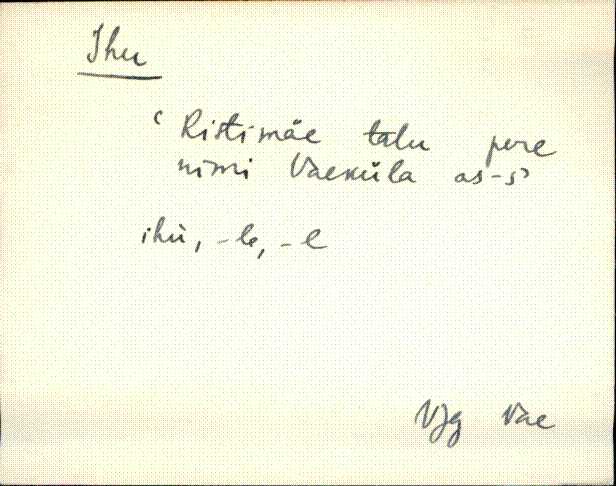 Ihu
‘Ristimäe talu pere
nimi Vaeküla as-s’
ihù, -le, -l
VJg Vae